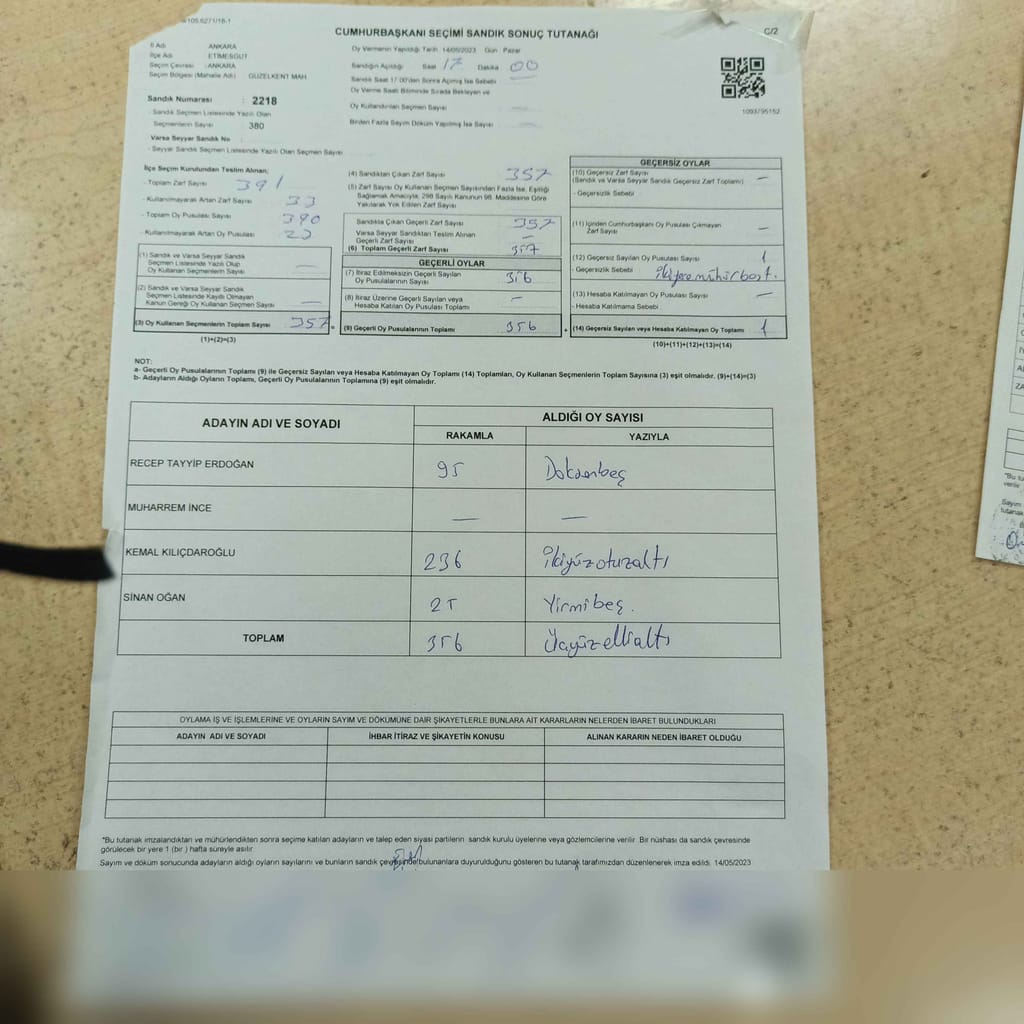 CUMHURBAŞKANI SEÇİMİ SANDIK SONUÇ TUTANAĞI
C/2
İl Adı ANKARA
İlçe Adı ETİMESGUT
Seçim Çevresi : ANKARA
Seçim Bölgesi (Mahalle Adı) : GÜZELKENT MAH.
Sandık Numarası : 2218
Sandık Seçmen Listesinde Yazılı Olan
Seçmenlerin Sayısı 380
Varsa Seyyar Sandık No :
- Seyyar Sandık Seçmen Listesinde Yazılı Olan Seçmen Sayısı
Oy Vermenin Yapıldığı Tarih 14/05/2023 Gün Pazar
Sandığın Açıldığı Saat 17 Dakika 00
Sandık Saat 17:00'den Sonra Açılmış İse Sebebi
Oy Verme Saati Bitiminde Sırada Bekleyen ve
Oy Kullandırılan Seçmen Sayısı
Birden Fazla Sayım Döküm Yapılmış İse Sayısı
1093795152
İlçe Seçim Kurulundan Teslim Alınan;
- Toplam Zarf Sayısı 391
- Kullanılmayarak Artan Zarf Sayısı 33
- Toplam Oy Pusulası Sayısı 390
- Kullanılmayarak Artan Oy Pusulası
(1) Sandık ve Varsa Seyyar Sandık
Seçmen Listesinde Yazılı Olup
Oy Kullanan Seçmenlerin Sayısı —
(2) Sandık ve Varsa Seyyar Sandık
Seçmen Listesinde Kayıtlı Olmayan
Kanun Gereği Oy Kullanan Seçmen Sayısı —
(3) Oy Kullanan Seçmenlerin Toplam Sayısı 357 =
(1)+(2)=(3)
(4) Sandıktan Çıkan Zarf Sayısı 357
(5) Zarf Sayısı Oy Kullanan Seçmen Sayısından Fazla İse, Eşitliği
Sağlamak Amacıyla, 298 Sayılı Kanunun 98. Maddesine Göre
Yakılarak Yok Edilen Zarf Sayısı
Sandıkta Çıkan Geçerli Zarf Sayısı 357
Varsa Seyyar Sandıktan Teslim Alınan
Geçerli Zarf Sayısı —
(6) Toplam Geçerli Zarf Sayısı 357
GEÇERLİ OYLAR
(7) İtiraz Edilmeksizin Geçerli Sayılan
Oy Pusulalarının Sayısı 356
(8) İtiraz Üzerine Geçerli Sayılan veya
Hesaba Katılan Oy Pusulası Toplamı —
(9) Geçerli Oy Pusulalarının Toplamı 356 +
GEÇERSİZ OYLAR
(10) Geçersiz Zarf Sayısı
(Sandık ve Varsa Seyyar Sandık Geçersiz Zarf Toplamı) —
- Geçersizlik Sebebi
(11) İçinden Cumhurbaşkanı Oy Pusulası Çıkmayan
Zarf Sayısı —
(12) Geçersiz Sayılan Oy Pusulası Sayısı 1
- Geçersizlik Sebebi
(13) Hesaba Katılmayan Oy Pusulası Sayısı —
- Hesaba Katılmama Sebebi
(14) Geçersiz Sayılan veya Hesaba Katılmayan Oy Toplamı 1
(10)+(11)+(12)+(13)=(14)
NOT:
a- Geçerli Oy Pusulalarının Toplamı (9) ile Geçersiz Sayılan veya Hesaba Katılmayan Oy Toplamı (14) Toplamları, Oy Kullanan Seçmenlerin Toplam Sayısına (3) eşit olmalıdır. (9)+(14)=(3)
b- Adayların Aldığı Oyların Toplamı, Geçerli Oy Pusulalarının Toplamına (9) eşit olmalıdır.
ADAYIN ADI VE SOYADI ALDIĞI OY SAYISI
RAKAMLA YAZIYLA
RECEP TAYYİP ERDOĞAN 95 Doksanbeş
MUHARREM İNCE — —
KEMAL KILIÇDAROĞLU 236 İkiyüzotuzaltı
SİNAN OĞAN 25 Yirmibeş.
TOPLAM 356 Üçyüzellialtı
OYLAMA İŞ VE İŞLEMLERİNE VE OYLARIN SAYIM VE DÖKÜMÜNE DAİR ŞİKAYETLERLE BUNLARA AİT KARARLARIN NELERDEN İBARET BULUNDUKLARI
ADAYIN ADI VE SOYADI İHBAR İTİRAZ VE ŞİKAYETİN KONUSU ALINAN KARARIN NEDEN İBARET OLDUĞU
*Bu tutanak imzalandıktan ve mühürlendikten sonra seçime katılan adayların ve talep eden siyasi partilerin sandık kurulu üyelerine veya gözlemcilerine verilir. Bir nüshası da sandık çevresinde
görülecek bir yere 1 (bir) hafta süreyle asılır.
Sayım ve döküm sonucunda adayların aldığı oyların sayılarını ve bunların sandık çevresinde bulunanlara duyurulduğunu gösteren bu tutanak tarafımızdan düzenlenerek imza edildi. 14/05/2023